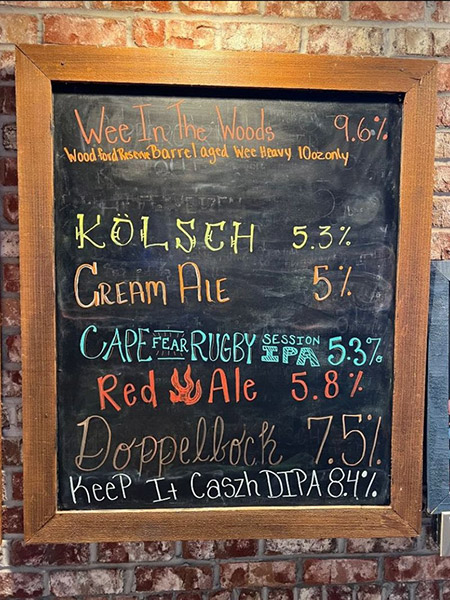 Wee In The Woods 9.6%
Woodford Reserve Barrel aged Wee Heavy 10oz only
KÖLSCH 5.3%
CREAM ALE 5%
CAPE FEAR RUGBY SESSION IPA 5.3%
Red Ale 5.8%
Doppelbock 7.5%
KeeP It Caszh DIPA 8.4%